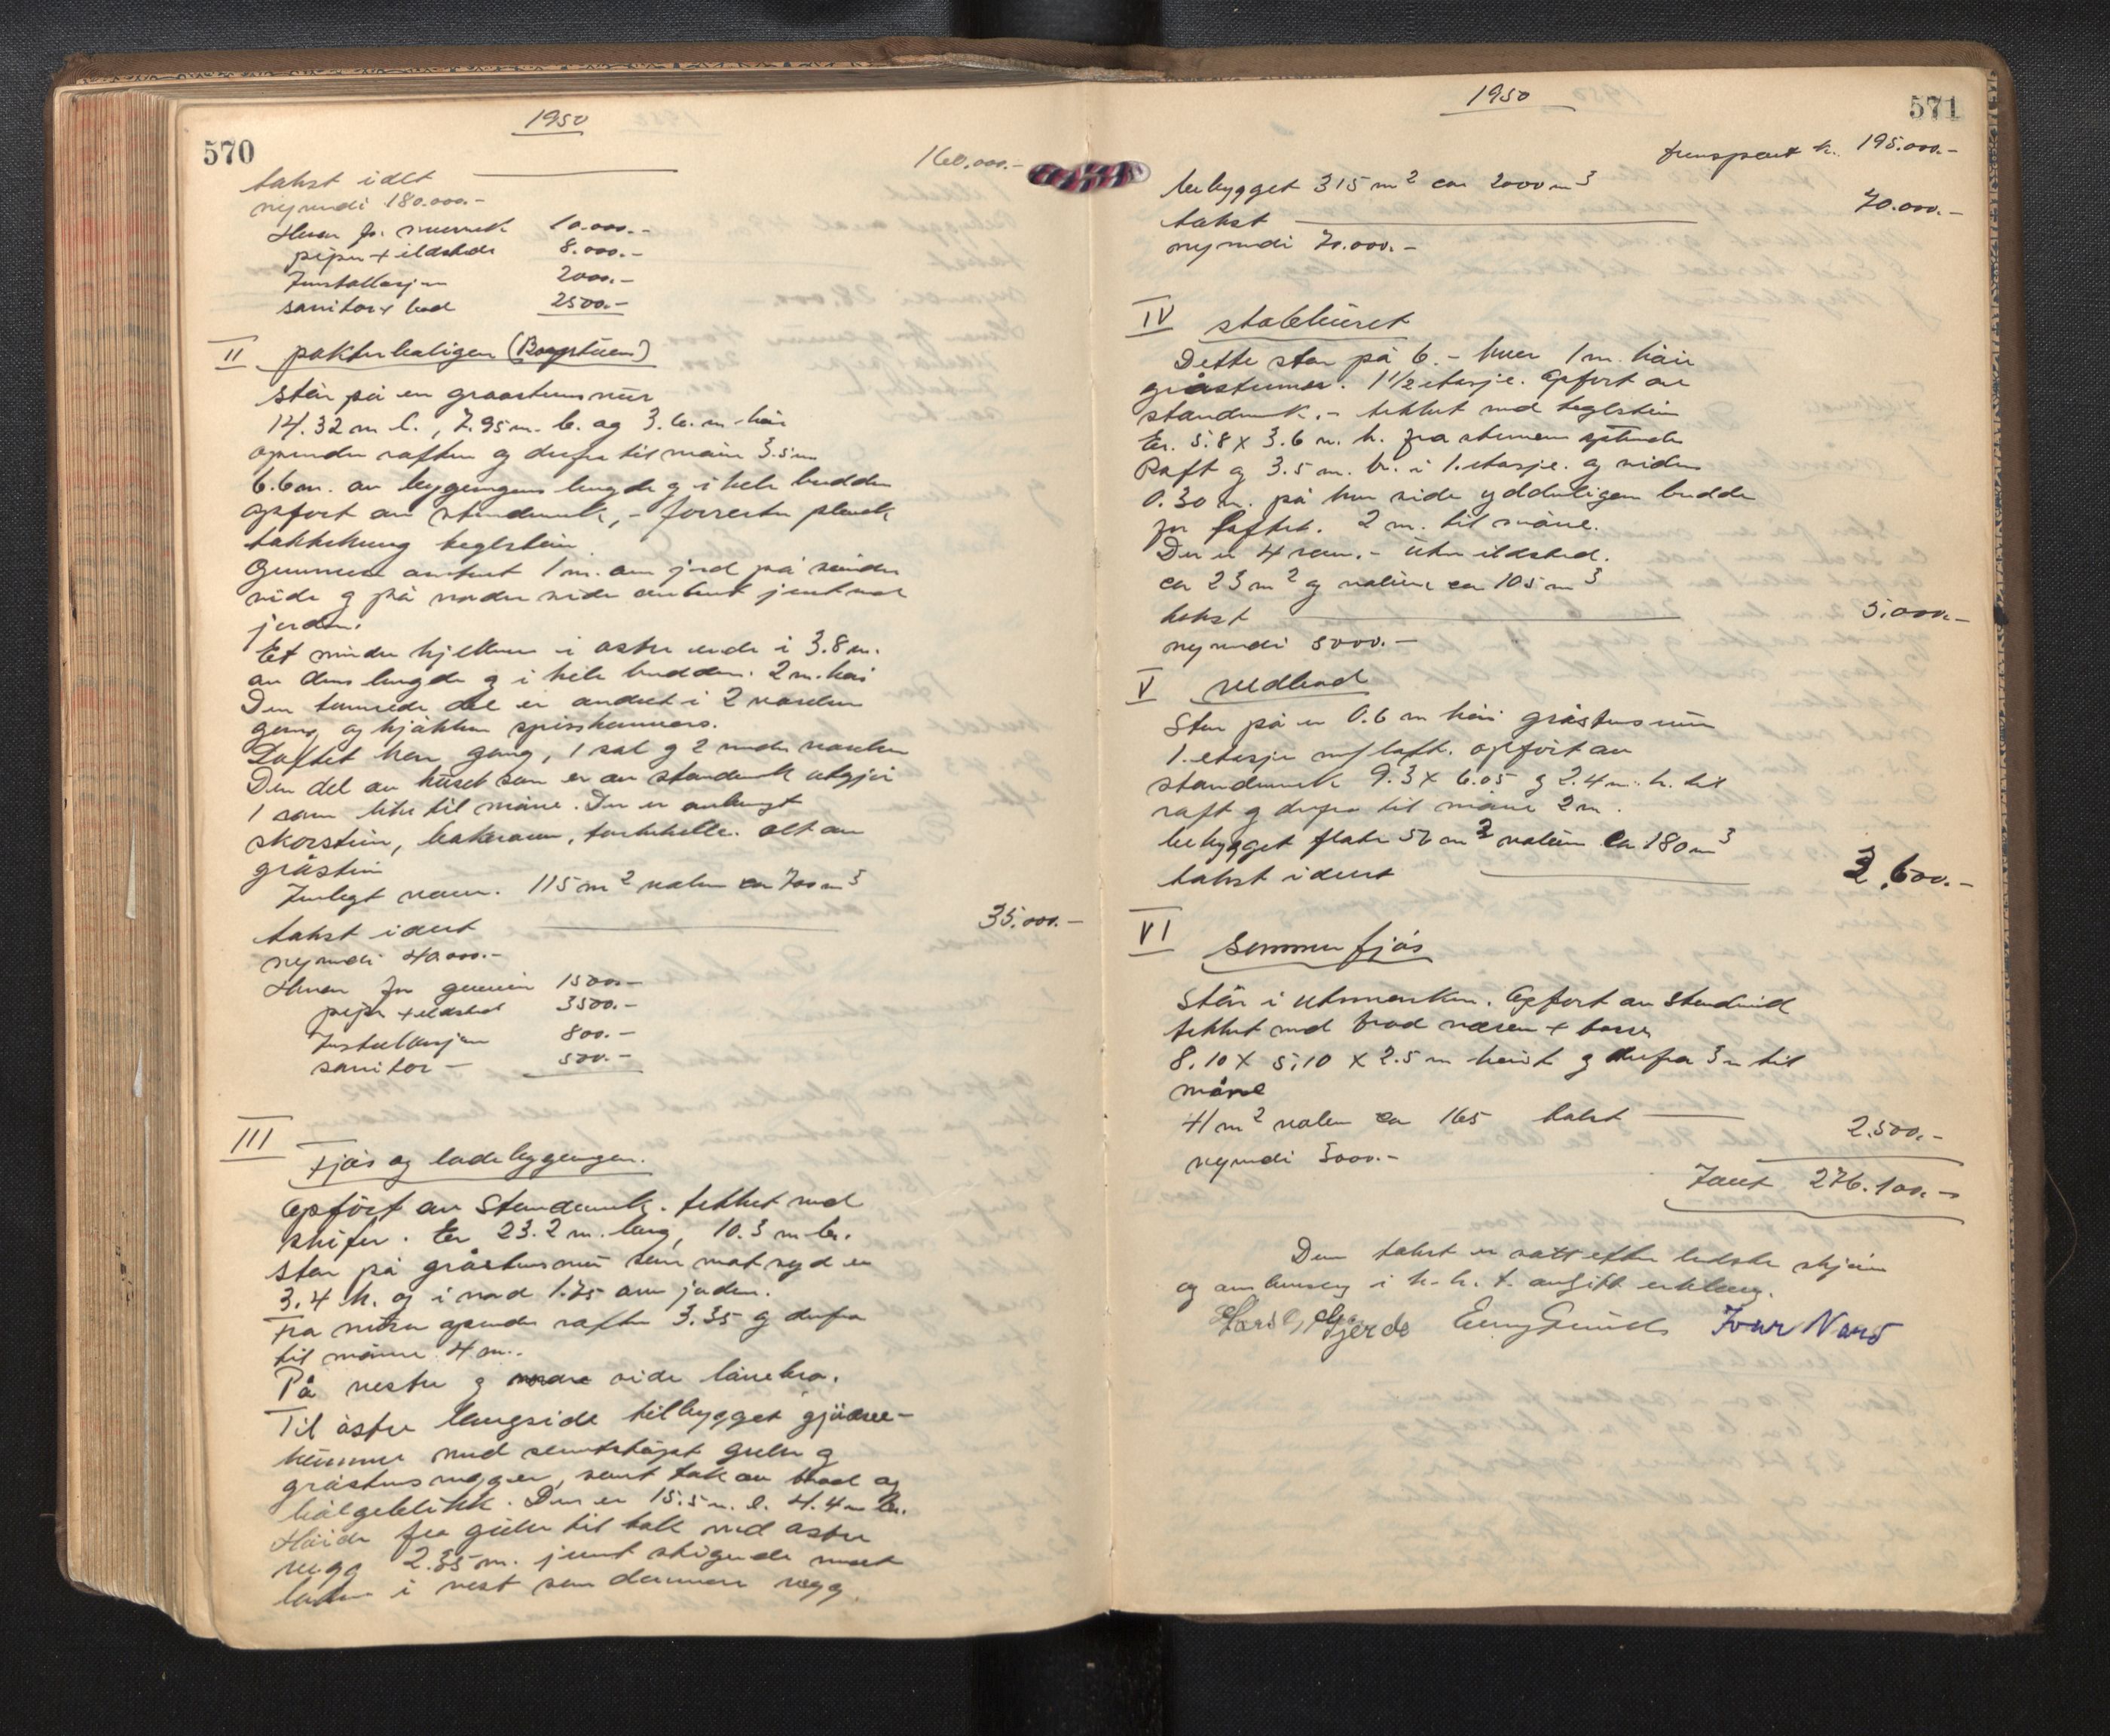 1950
570
takst idet 160.000.-
nyverdi 180.000.-
Herav for murverk 10.000.-
piper + ildsteder 8.000.-
Installasjon 2000.-
sanitær + bad 2500.-
II pakterboligen
Står på en graastensmur
14.32 m l., 7.95 m. b. og 3.6. m. høi
op under raften og derfra til møne 3.5 m
6.6 m. av bygningens lengde og i hele bredden
opført av stenderverk, - forresten plank
takktekning teglstein.
Grunnmur omtrent 1 m. over jord på søndre
side og på nordre side omtrent jevnt med
jorden.
Et mindre hjellrum i østre ende i 3.8 m.
av dens lengde og i hele bredden. 2 m. høi
Den tømrede del er inndelt i 2 værelser
gang og kjøkken spiskammers.
Loftet har gang, 1 sal og 2 mindre værelser
Den del av huset som er av stenderverk utgjør
1 rom like til møne. Der er anbragt
skorstein, bakerovn, takkehelle. alt av
gråstein
Innlagt vann. 115 m2 volum ca 700 m3
takst idet 35.000.-
nyverdi 40.000.-
Herav for grunnmur 1500.-
piper + ildsted 3500.-
Installasjon 800.-
sanitær - 500.-
III Fjøs og ladebygningen.
Opført av Stenderverk. tekket med
skifer. Er 23.2 m. lang, 10.3 m br.
Står på gråstensmur som mot syd er
3.4 h. og i nord 1.75 over jorden.
Fra muren op under raften 3.35 og derfra
til møne 4 m.
På vestre og nordre side låvebro.
Til østre langside tilbygget gjødsel-
kummer med sementstøpt gulv og
gråstens vegger, samt tak av bord og
bølgeblikk. Den er 15.5 m. l. 4.4 m br.
Høide fra gulv til tak ved østre
vegg 2.35 m. jevnt stigende mot
laden i vest som danner vegg.
1950
571
transport kr. 195.000.-
bebygget 315 m2 ca 2000 m3
takst 70.000.-
nyverdi 70.000.-
IV stabburet
Dette står på 6. - hver 1 m. høie
gråstenner. 1 1/2 etasje. Opført av
stenderverk. - tekket med teglstein
Er. 5.8 x 3.6 m. h. fra stenene op under
Raft og 3.5 m. br. i 1. etasje. og siden
0.30 m. på hver side ydderligere bredde
for loftet. 2 m. til møne.
Der er 4 rom. - Uten ildsted.
ca 23 m2 og volum ca 105 m3
takst 5.000.-
nyverdi 5000.-
V vedbod
Står på en 0.6 m høi gråstensmur
1. etasje m/ loft. opført av
stenderverk 9.3 x 6.05 og 2.4 m. h. til
raft og derfra til møne 2 m.
bebygget flate 56 m2 volum ca 180 m3
takst idet 3.600.-
VI Sommerfjøs
Står i utmarken. Opført av Stenderverk
tekket med bord never + torv
8.10 x 5.10 x 2.5 m høit og derfra 3 m til
møne
41 m2 volum ca 165 takst 2.500.-
nyverdi 3000.-
Taut 276.100.-
Denne takst er satt efter bedste skjønn
og overbevisning i h. h. t. avgitt erklæring.
Lars O. Gjerde Ivar Nero